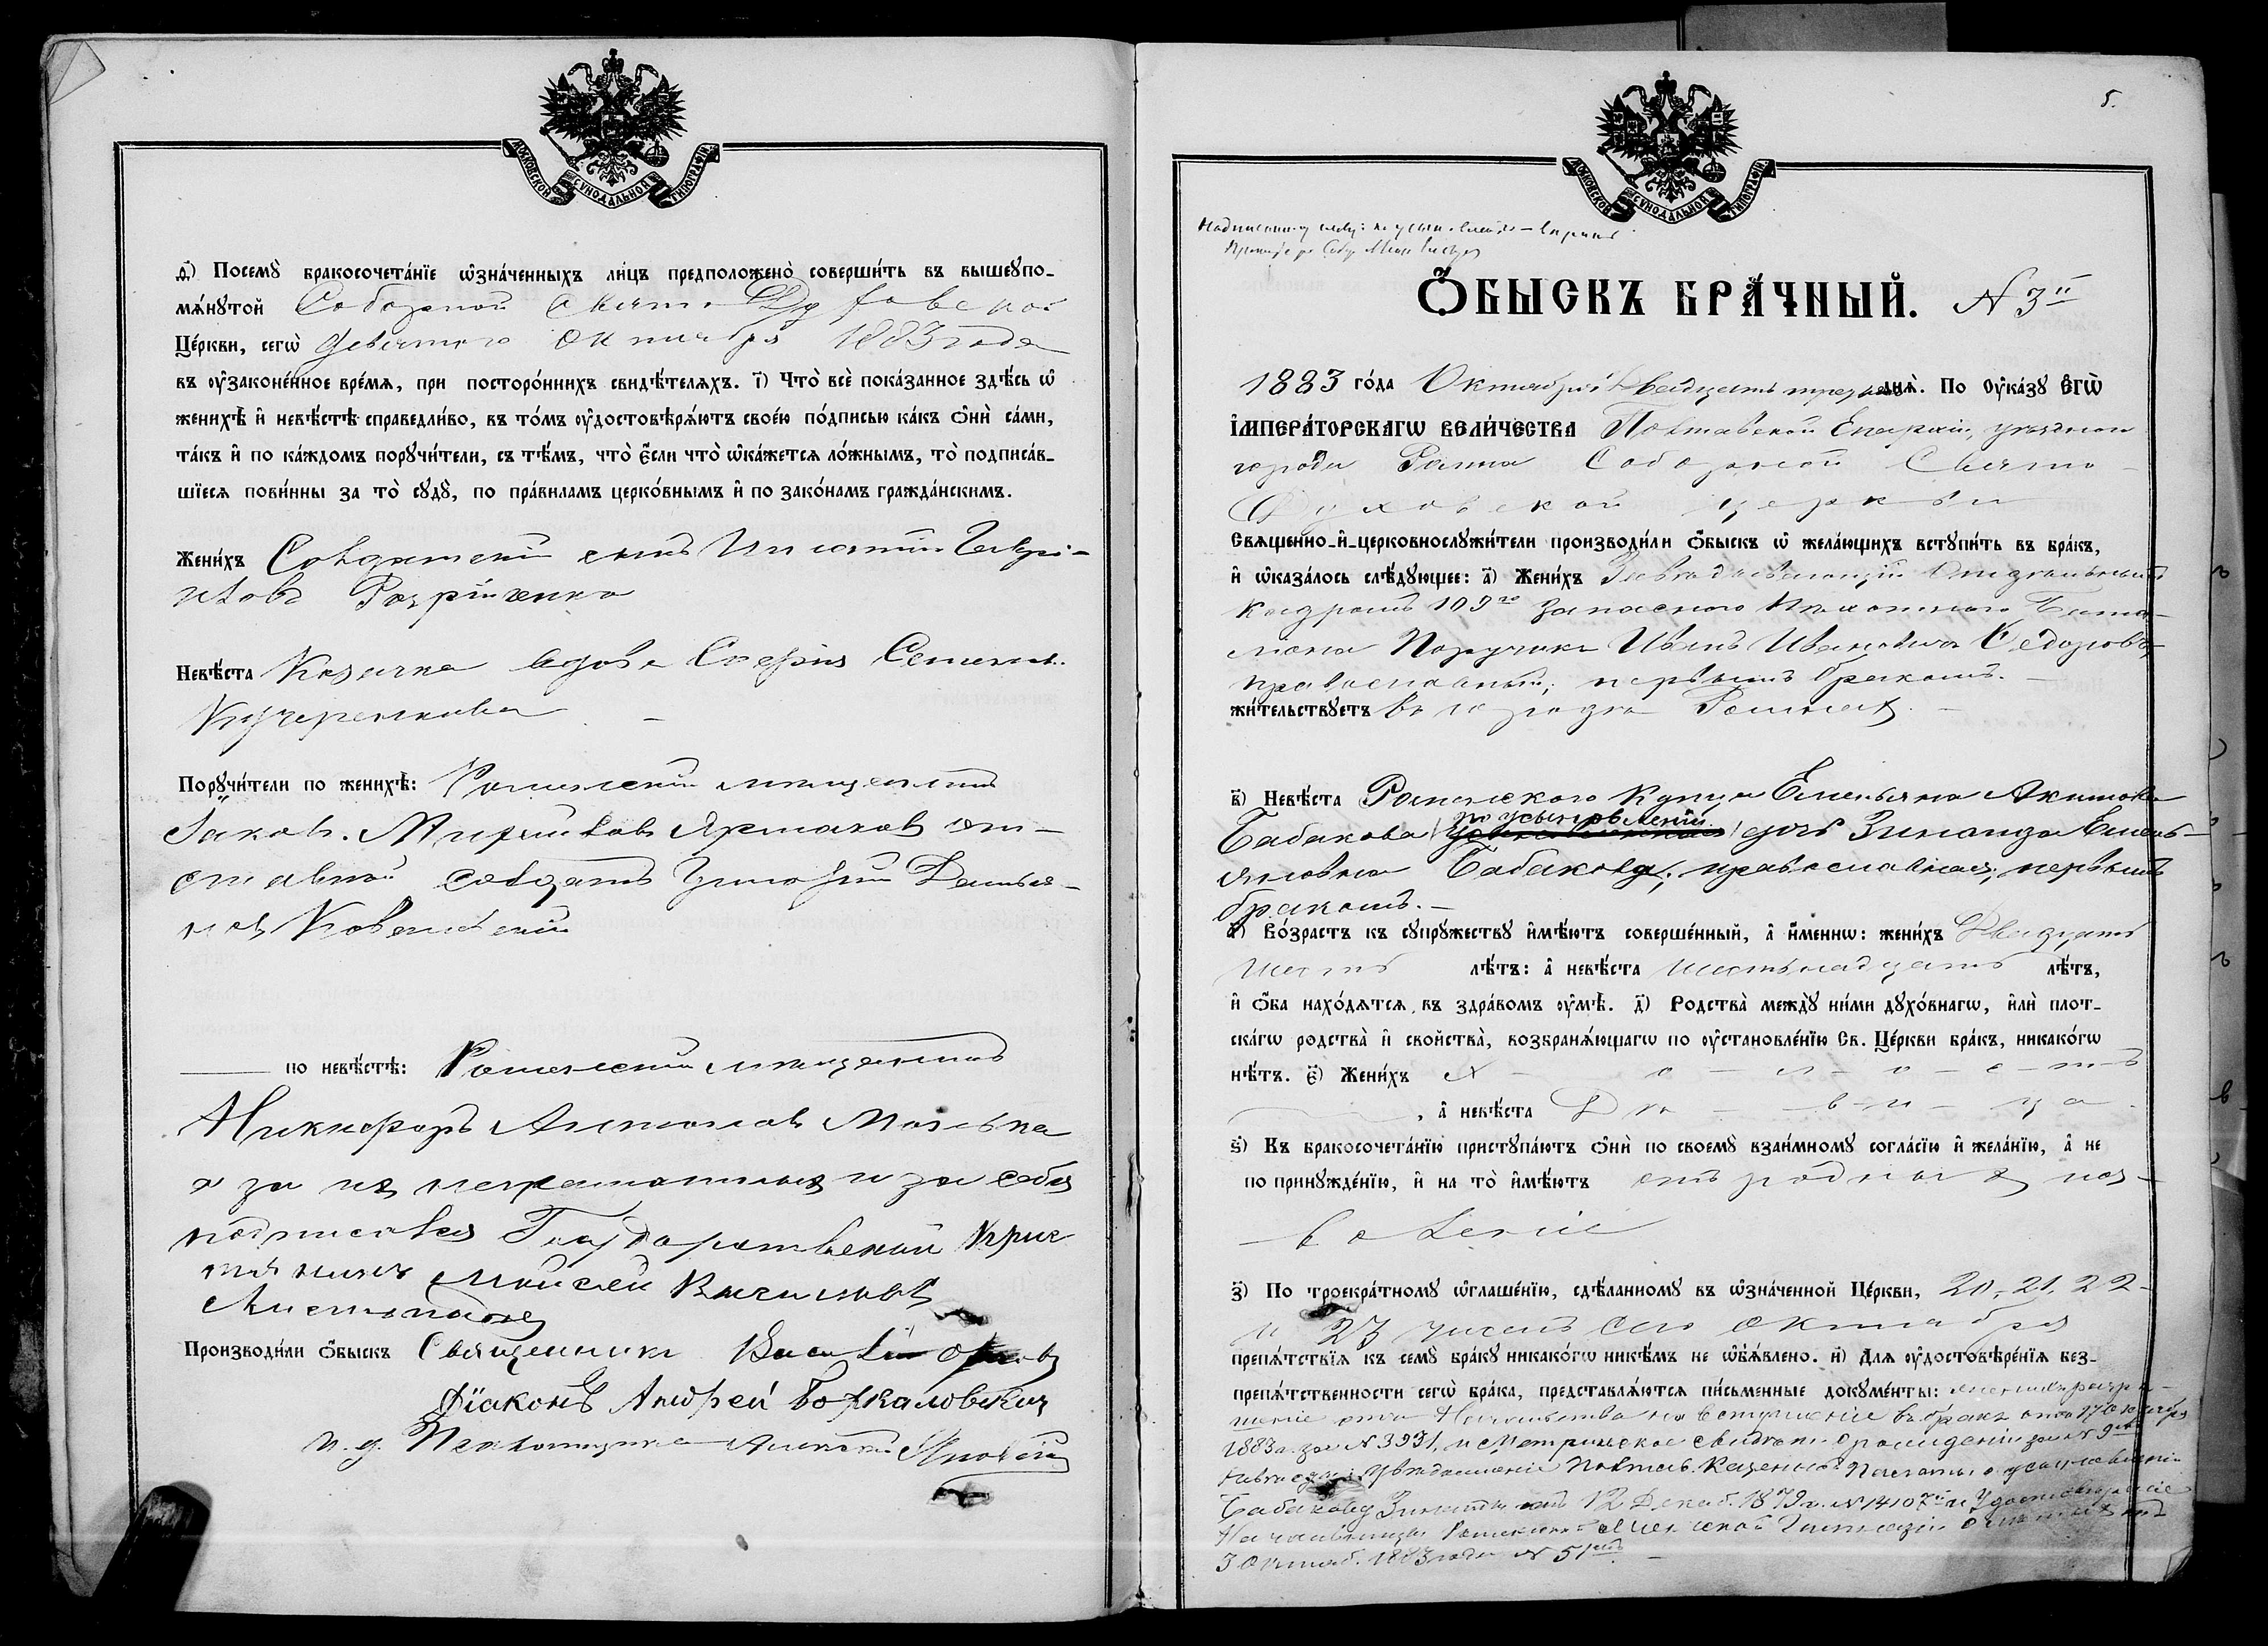 МОСКОВСКОЙ СѴНОДАЛЬНОЙ ТИПОГРАФІИ
д҃і) Посемꙋ̀ бракосочета́нїе ѡ҆зна́ченныхъ ли́цъ предположено̀ соверши́ть въ вышеꙋпо-
мѧ́нꙋтой Соборной Свято Духовской
Це́ркви, сегѡ̀ Девятого Октября 1883 года
въ ᲂу҆законе́нное вре́мѧ, при посторо́ннихъ свидѣ́телѧхъ. і҃) Что̀ всѐ пока́занное здѣ́сь ѡ҆
женихѣ̀ и҆ невѣ́стѣ справедли́во, въ то́мъ ᲂу҆достовѣрѧ́ютъ свое́ю по́дписью ка́къ ѻ҆нѝ са́ми,
та́къ и҆ по ка́ждомъ порꙋчи́тели, съ тѣ́мъ, что̀ є҆́сли что̀ ѡ҆ка́жетсѧ ло́жнымъ, то̀ подписа́в-
шїесѧ пови́нны за то̀ сꙋдꙋ̀, по пра́виламъ церко́внымъ и҆ по зако́намъ гражда́нскимъ.
Жени́хъ Солдатскій сынъ Игнатій Гаврі-
иловъ
Невѣ́ста Козачка вдова Софія Семенова
Кучеренкова
Порꙋчи́тели по женихѣ̀: Роменскій мѣщанинъ
Іаковъ Ярмаковъ от-
ставной солдатъ Тимофій Демья-
новъ
по невѣ́стѣ: Роменскій мѣщанинъ
Никифоръ Антоновъ
а за ихъ неграмотныхъ и за себя
подписался Государственный крис
тьянинъ Моисей
Производи́ли ѻ҆́быскъ Священникъ Василій
Діаконъ Андрей Боржаловскій
и. д. Псаломщика Алексій
5.
МОСКОВСКОЙ СѴНОДАЛЬНОЙ ТИПОГРАФІИ
Ѻ҆́БЫСКЪ БРА́ЧНЫЙ. N 3й
1883 го́да Октября двадцать третьяго днѧ̀. По ᲂу҆ка́зꙋ Є҆гѡ̀
І҆мпера́торскагѡ вели́чества Полтавской Епархіи, уезднаго
города Ромна Соборной Свято
Духовской церкви
Сващенно-и҆-церковнослꙋжи́тели производи́ли ѻ҆́быскъ ѡ҆ жела́ющихъ встꙋпи́ть въ бра́къ,
и҆ ѡ҆каза́лось слѣ́дꙋющее: а҃) Жени́хъ Завѣдывающій
Кадромъ 109го Запаснаго Пѣхотного Бата-
ліона Поручикъ Иванъ Ивановичъ Федоровъ,
православный, первымъ бракомъ.
жи́тельствꙋетъ въ городѣ Ромнахъ
в҃) Невѣ́ста Роменского Купца Емельяна Акимова
по усыновленію
Бабакова дочь Зинаида Емель-
яновна Бабакова, православная, первымъ
бракомъ.
г҃) Во́зрастъ къ сꙋпрꙋ́жествꙋ и҆мѣ́ютъ соверше́нный, а҆ и҆́меннѡ: жени́хъ Двадцать
шесть лѣ́тъ: а҆ невѣ́ста шестьнадцать лѣ́тъ,
и҆ ѻ҆́ба нахо́дѧтсѧ въ здра́вомъ ᲂу҆мѣ̀. д҃) Родства̀ междꙋ̀ ни́ми дꙋхо́внагѡ, и҆лѝ плот-
ска́гѡ родства̀ и҆ сво́йства̀, возбранѧ́ющагѡ по ᲂу҆становле́нїю Св. Це́ркви бра́къ, никако́гѡ
нѣ́тъ. є҃) Жени́хъ х - о - л - о - с - тъ
, а҆ невѣ́ста Дѣ - в - и - ца
ѕ҃) Къ бракосочета́нїю пристꙋпа́ютъ ѻ҆нѝ по своемꙋ̀ взаи́мномꙋ согла́сїю и҆ жела́нїю, а҆ не
по принꙋжде́нїю, и҆ на то̀ и҆мѣ́ютъ отъ родныхъ поз-
воленіе
з҃) По троекра́тномꙋ ѡ҆глаше́нїю, сдѣ́ланномꙋ въ ѡ҆зна́ченной Це́ркви, 20, 21, 22
и 23 чиселъ сего октября
препѧ́тствїѧ къ семꙋ̀ бра́кꙋ никако́гѡ никѣ́мъ не ѡ҆б̾ѧ́влено. и҃) Длѧ ᲂу҆достовѣре́нїѧ без-
препѧ́тственности сегѡ̀ бра́ка, представлѧ́ютсѧ пи́сьменные докꙋме́нты: разрѣ-
шеніе отъ Начальства на вступленіе въ бракъ отъ 17 Октября
1883 за N 3931, и Метрическое свидѣт. о рожденіи за N
увѣдомленіе Полтав. Казенной Палаты о усыновленіи
Бабакову Зинаиды отъ 12 Декаб. 1879 г. N 14107 и удостовѣреніе
Начальницы Роменской женской Гимназіи отъ
3 Октяб. 1883 года N 51